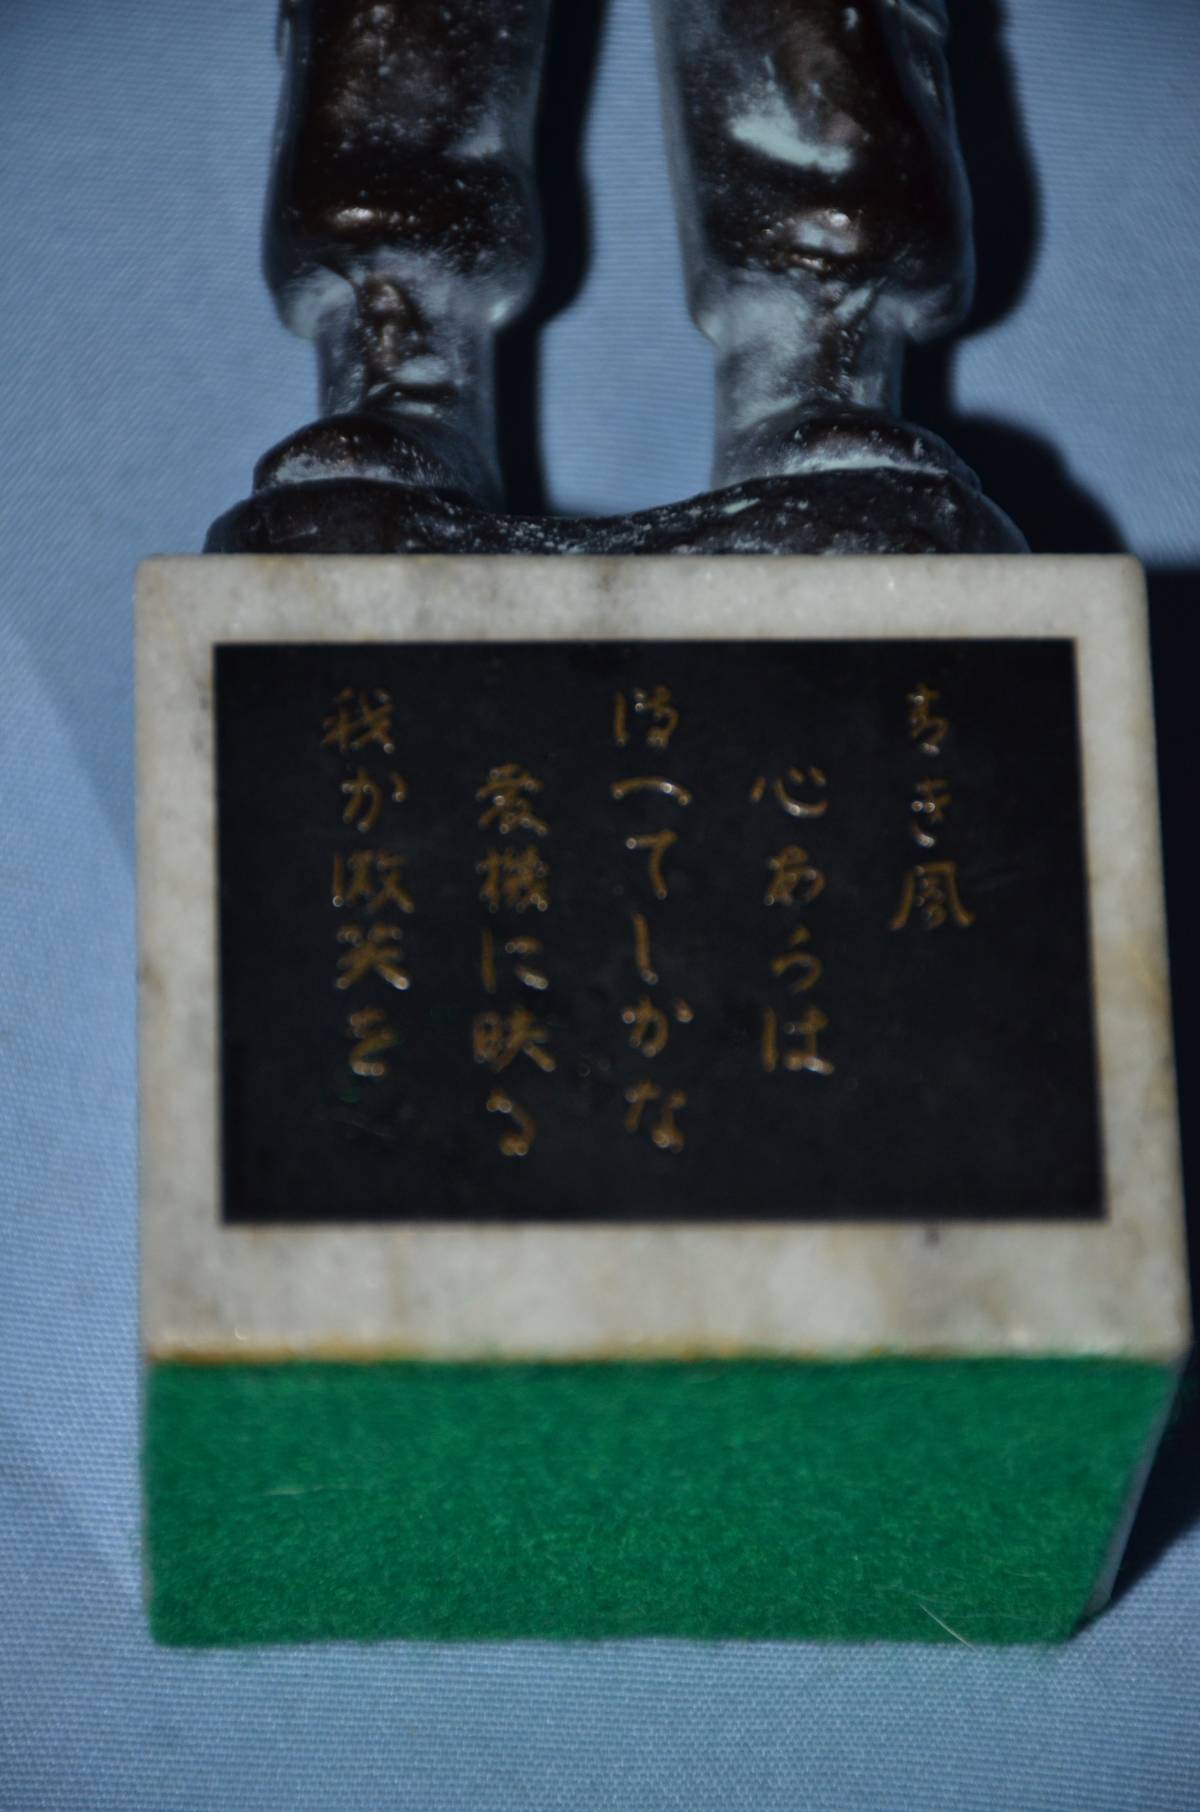 青き風
心あらは
傳へてしかな
愛機に映る
我か微笑を